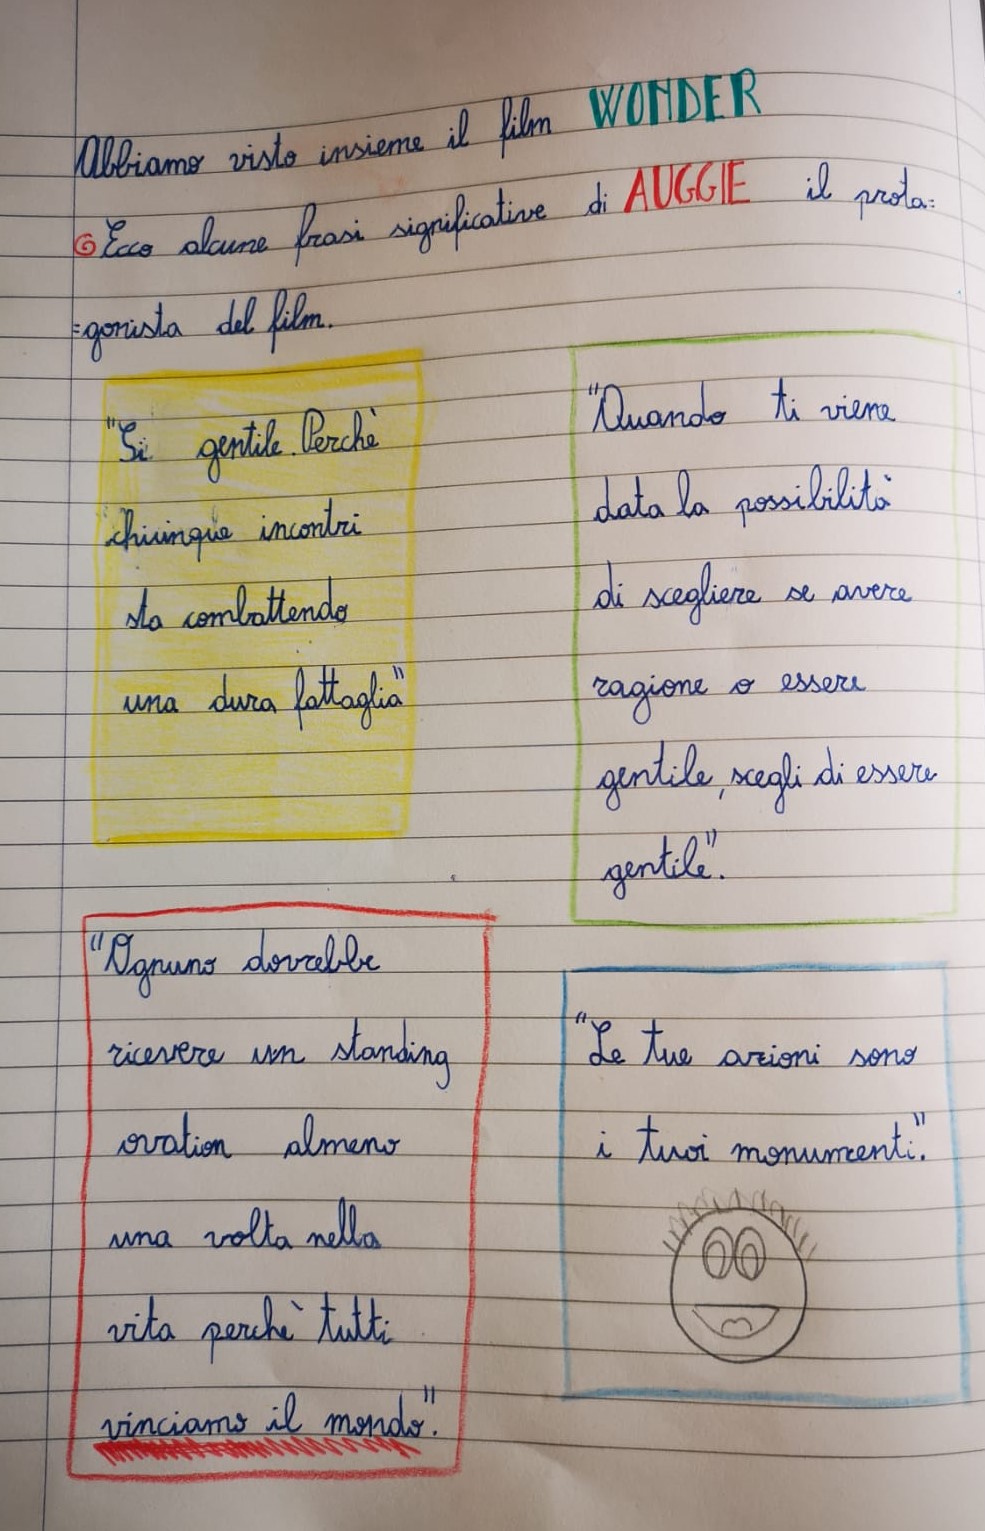 Abbiamo visto insieme il film WONDER
Ecco alcune frasi significative di AUGGIE il prota=
=gonista del film.
"Si gentile. Perchè
chiunque incontri
sta combattendo
una dura fattaglia"
"Quando ti viene
data la possibilità
di scegliere se avere
ragione o essere
gentile, scegli di essere
gentile".
"Ognuno dovrebbe
ricevere un standing
ovation almeno
una volta nella
vita perchè tutti
vinciamo il mondo".
"Le tue azioni sono
i tuoi monumenti."